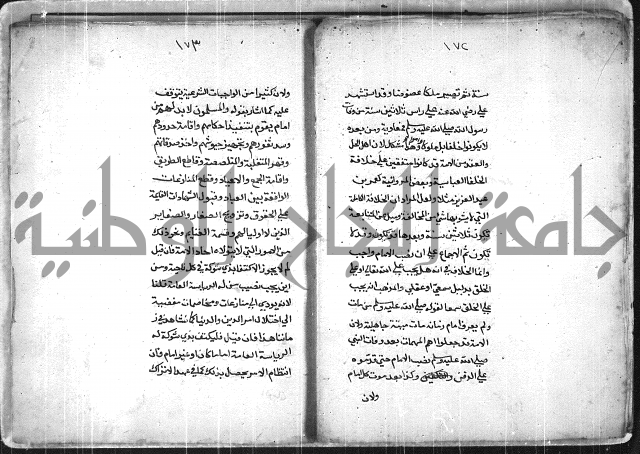 ١٧٢
سنة ثم تصير ملكا عضوضا وقد استشهد
علي رضي الله عنه علي راس ثلاثين سنة من وفاة
رسول الله صلي الله عليه وسلم فمعاوية ومن بعده
لا يكونوا خلفا بل ملوكا وامرا وهذا مشكل لان اهل الحل
والعقد من الامة قد كانوا متفقين علي خلافة
الخلفا العباسية وبعض المروانية كعمر بن
عبد العزيز مثلا ولعل المراد ان الخلافة الكاملة
التي لا يشوبها شي من المخالفة وميل عن المتابعة
تكون ثلاثين سنة وبعدها قد تكون وقد لا
تكون ثم الاجماع علي ان نصب الامام واجب
وانما الخلاف في انه هل يجب علي الله تعالي او علي
الخلق بدليل سمعي او عقلي والمذهب انه يجب
علي الخلق سمعا لقوله صلي الله عليه وسلم من مات
ولم يعرف امام زمانه مات ميتة جاهلية ولان
الامة قد جعلوا اهم المهمات بعد وفات النبي
صلي الله عليه وسلم نصب الامام حتي قدموه
علي الدفن وكذا بعد موت كل امام
ولان
١٧٣
ولان كثيرا من الواجبات الشرعية يتوقف
عليه كما اشار بقوله والمسلمون لا بد لهم من
امام يقوم بتنفيذ احكامهم واقامة حدودهم
وسد ثغورهم وتجهيز جيوشهم واخذ صدقاتهم
وقهر المتغلبة والمتلصصة وقطاع الطريق
واقامة الجمع والاعياد وقطع المنازعات
الواقعة بين العباد وقبول الشهادات القائمة
علي الحقوق وتزويج الصغار والصغاير
الذين لا اوليا لهم وقسمة الغنايم ونحو ذلك
من الامور التي لا يتولاها احاد الامة فان قيل
لم لا يجوز الاكتفا بذي شوكة في كل ناحية ومن
اين يجب نصب من له الرياسة العامة قلنا
لانه يودي الي منازعات ومخاصمات مفضية
الي اختلال امر الدين والدنيا كما نشاهد في ز
ماننا هذا فان قيل فليكتف بذي شوكة له
الرياسة العامة اماما كان او غير امام فان
انتظام الامر يحصل بذلك كما في عهد الاتراك
جامعة النجاح الوطنية